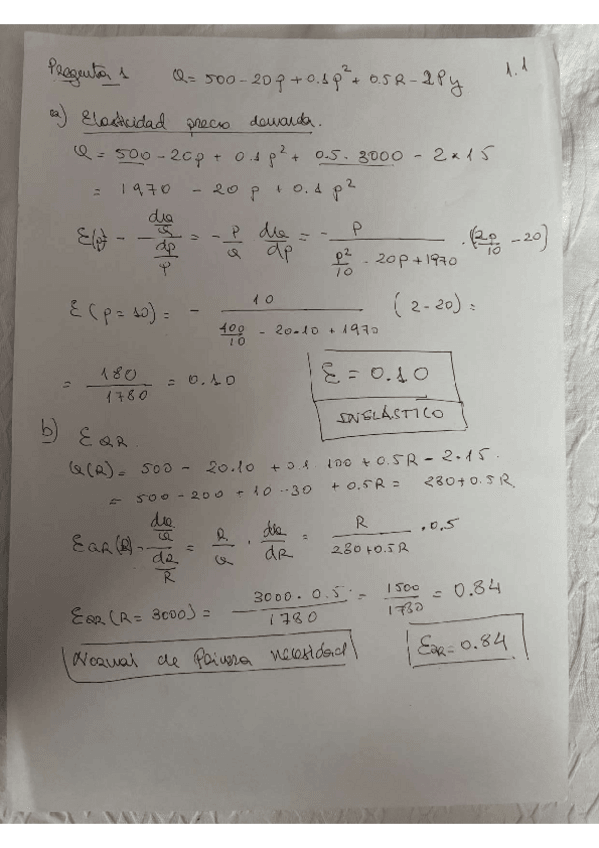 Pregunta 1 Q = 500 - 20p + 0.1p² + 0.5R - 2Py 1.1
a) Elasticidad precio demanda.
Q = 500 - 20p + 0.1p² + 0.5·3000 - 2×15
= 1970 - 20p + 0.1p²
E(p) - (dQ/Q)/(dp/p) = - P/Q dQ/dp = - P/(p²/10 - 20p + 1970) · (2p/10 - 20)
E(p=10) = - 10/(100/10 - 20·10 + 1970) (2-20) =
= 180/1780 = 0.10 E = 0.10
INELÁSTICO
b) EQR
Q(R) = 500 - 20.10 + 0.1 100 + 0.5R - 2·15.
= 500 - 200 + 10 - 30 + 0.5R = 280 + 0.5R
EQR(R) - (dQ/Q)/(dR/R) = R/Q · dQ/dR = R/(280 + 0.5R) · 0.5
EQR(R = 3000) = 3000·0.5/1780 = 1500/1780 = 0.84
Normal de Primera necesidad EQR = 0.84